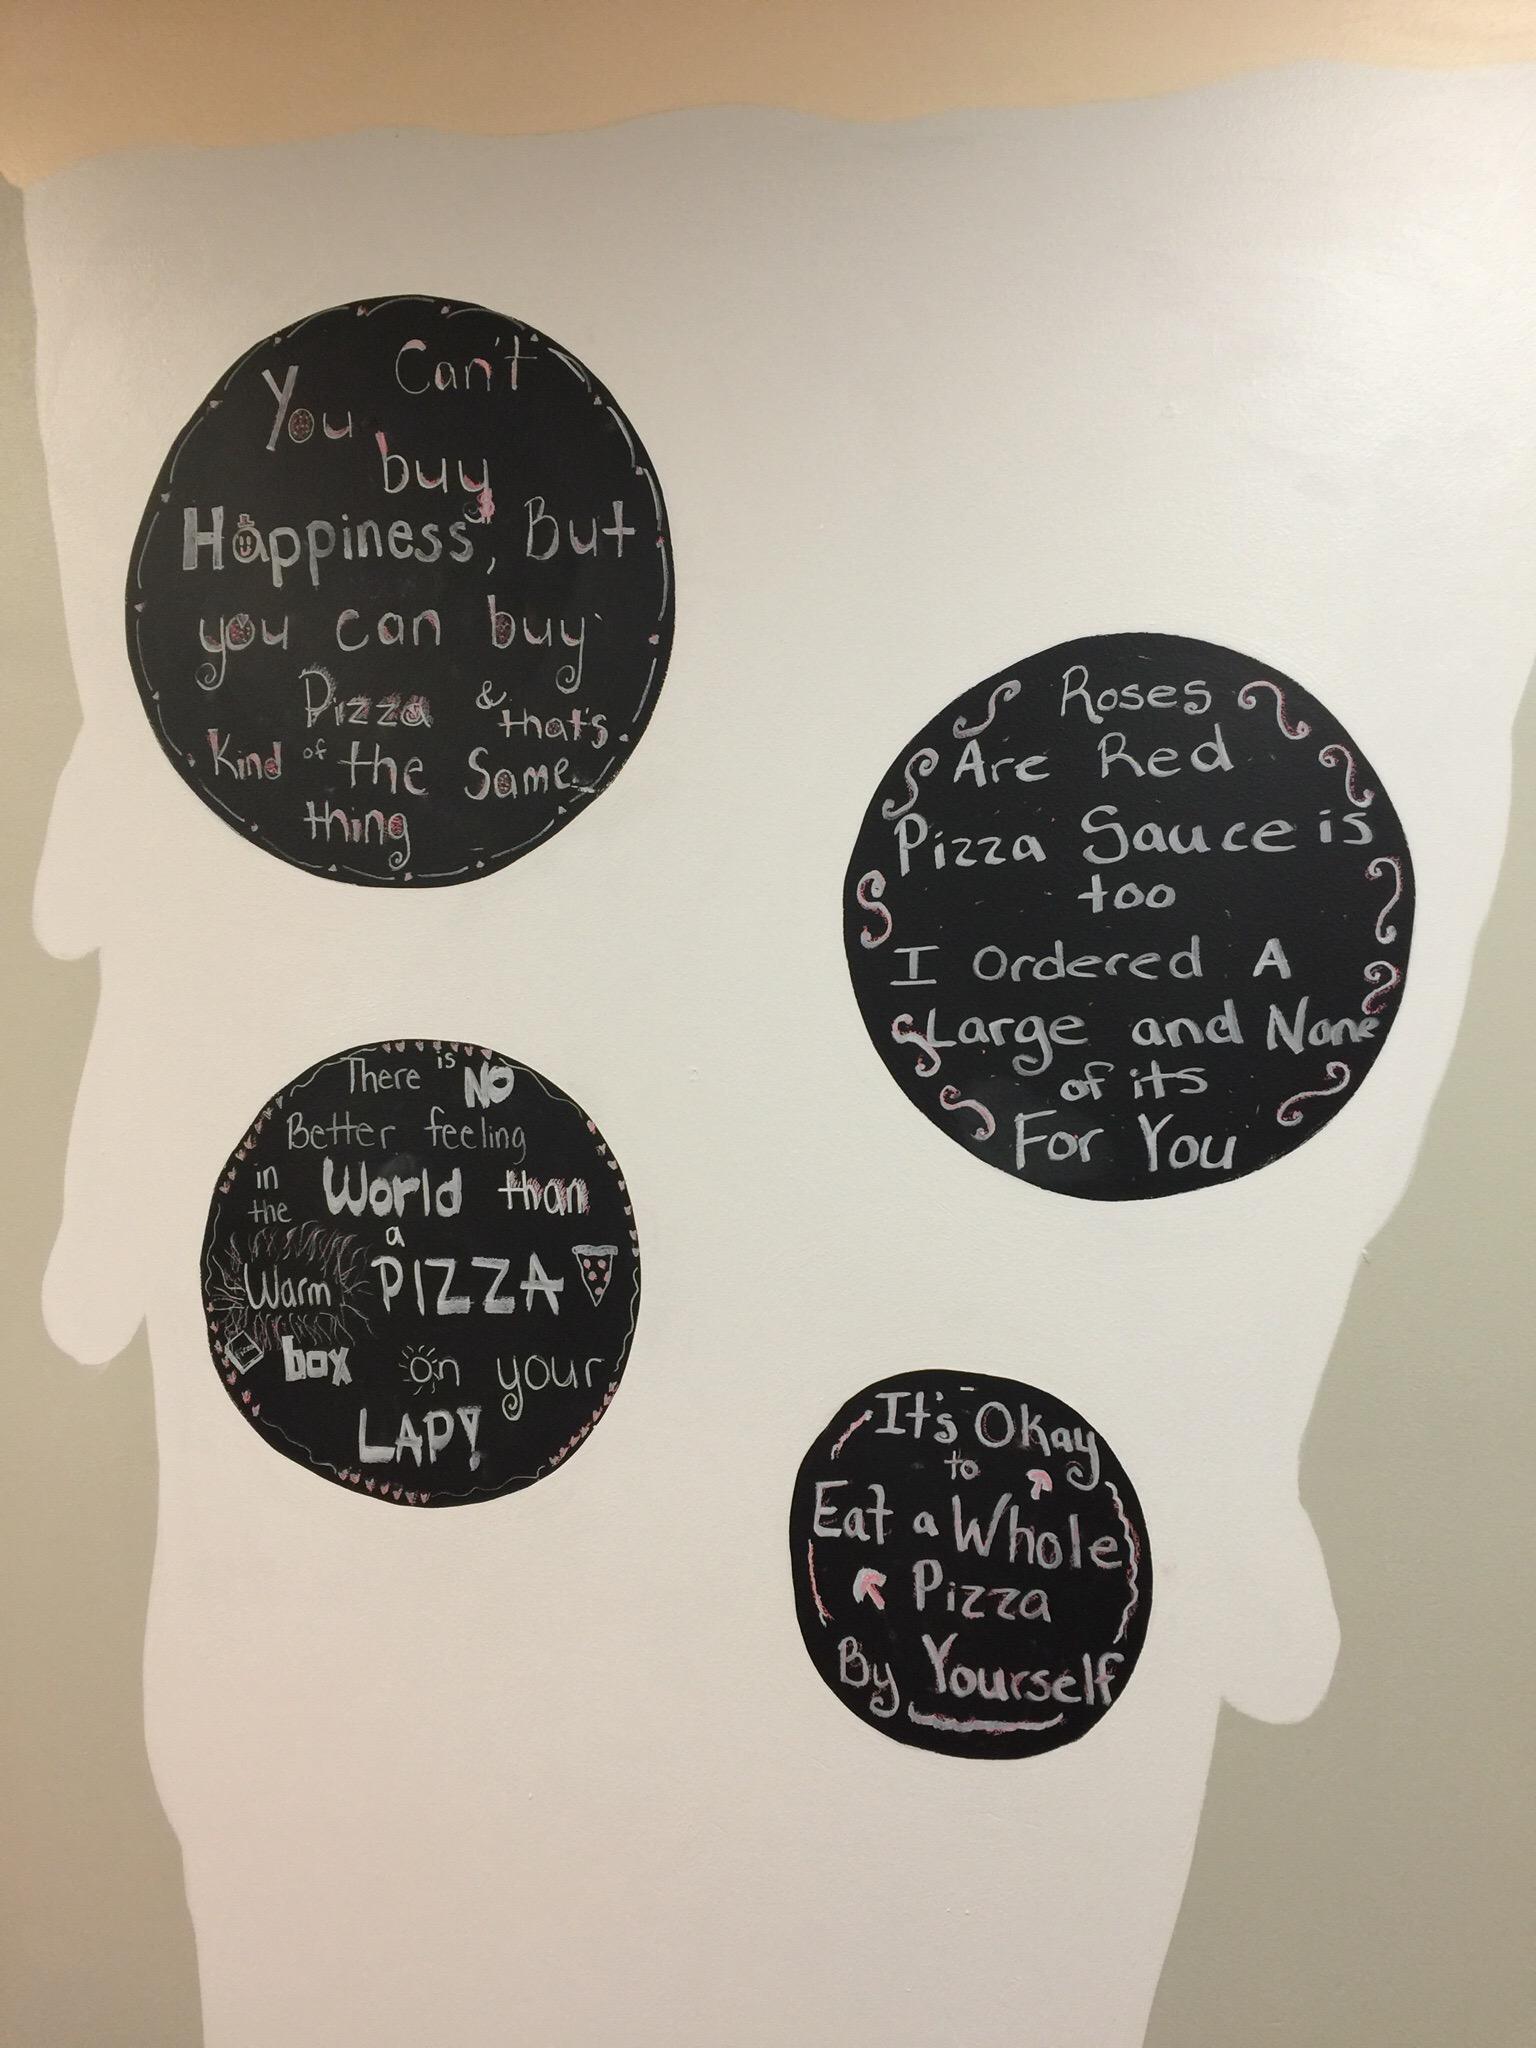 You Can't
buy
Happiness, But
you can buy
Pizza & that's
Kind of the Same
thing
Roses
Are Red
Pizza Sauce is
too
I Ordered A
Large and None
of its
For You
There is NO
Better feeling
in the World than
a
Warm PIZZA
box on your
LAP!
It's Okay
to
Eat a Whole
Pizza
By Yourself